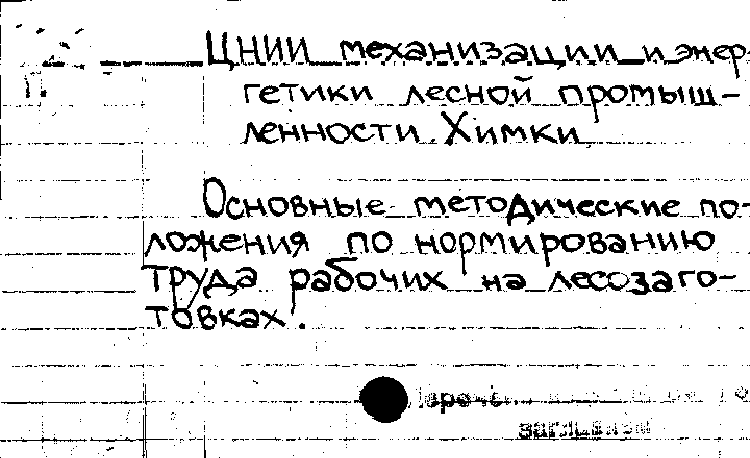 ЦНИИ механизации и энер-
гетики лесной промыш-
ленности. Химки
Основные методические по-
ложения по нормированию
труда рабочих на лесозаго-
товках.